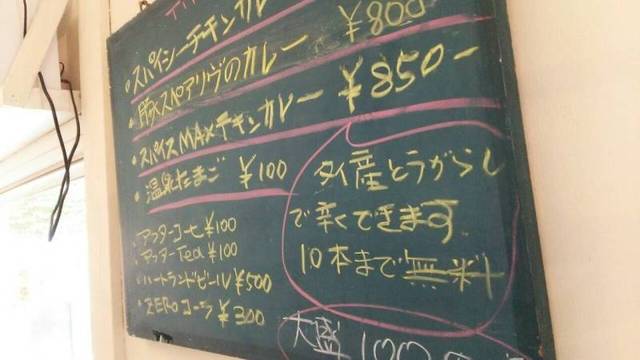 ・スパイシーチキンカレー
・豚スペアリヴのカレー ¥800
・スパイスMAXチキンカレー ¥850-
・温泉たまご ¥100
アフターコーヒ ¥100
・アフターTea ¥100
・ハートランドビール ¥500
・ZEROコーラ ¥300
タイ産とうがらし
で辛くできます
10本まで無料
大盛 100